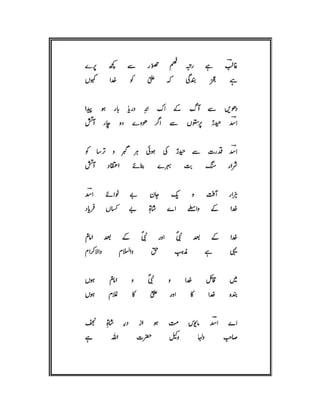 غالب ہے رتبہ فہم تصور سے کچھ پرے
ہے عجز بندگی کہ علی کو خدا کہوں
دھویں سے آگ کے اک ابر دریا بار ہو پیدا
اسد حیدر پرستوں سے اگر ہووے دو چار آتش
اسد قدرت سے حیدر کی ہوئی ہر گبر و ترسا کو
شرار سنگ بت بہر بنائے اعتقاد آتش
ہزار آفت و یک جان بے نوائے اسد
خدا کے واسطے اے شاہ بے کساں فریاد
خدا کے بعد نبی اور نبی کے بعد امام
یہی ہے مذہب حق والسلام والاکرام
میں قائل خدا و نبی و امام ہوں
بندہ خدا کا اور علی کا غلام ہوں
اے اسد مایوس مت ہو از در شاہ نجف
صاحب دلہا وکیل حضرت اللہ ہے